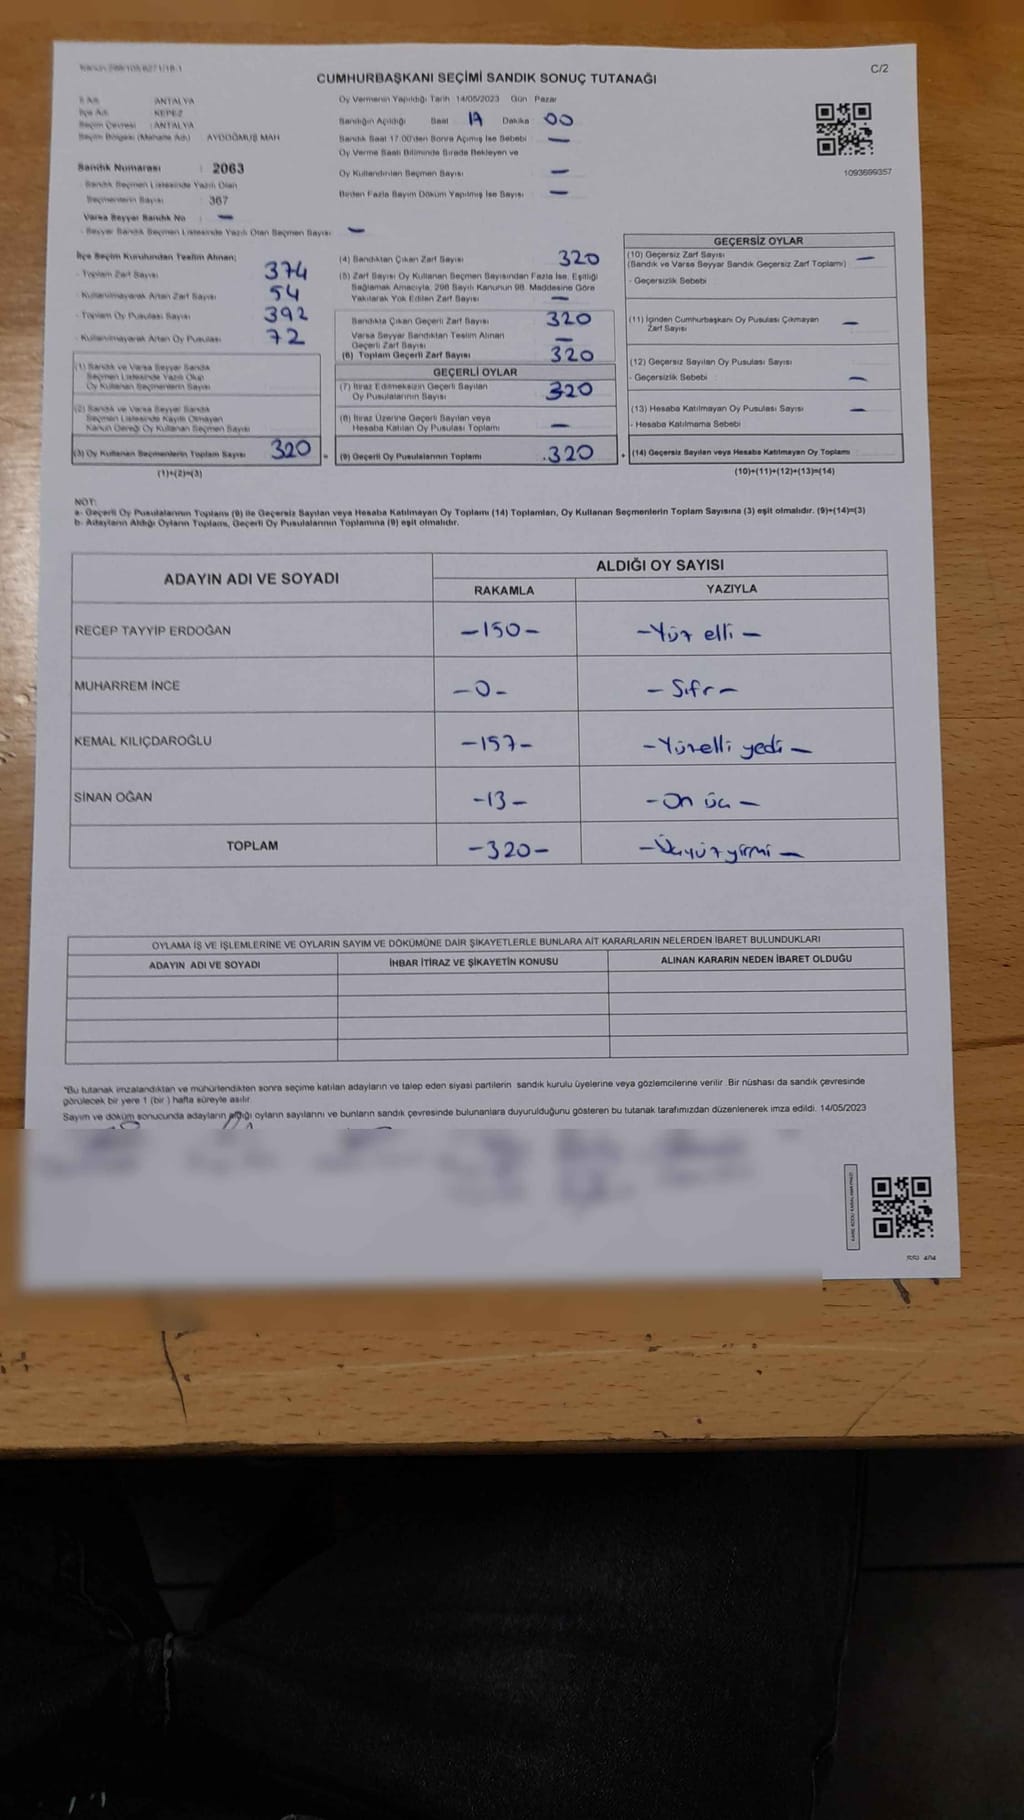 CUMHURBAŞKANI SEÇİMİ SANDIK SONUÇ TUTANAĞI
C/2
İli Adı : ANTALYA
İlçe Adı : KEPEZ
Seçim Çevresi : ANTALYA
Seçim Bölgesi (Mahalle Adı) : AYDOĞMUŞ MAH
Sandık Numarası : 2063
- Sandık Seçmen Listesinde Yazılı Olan
Seçmenlerin Sayısı : 367
Varsa Seyyar Sandık No : —
- Seyyar Sandık Seçmen Listesinde Yazılı Olan Seçmen Sayısı : —
Oy Vermenin Yapıldığı Tarih 14/05/2023 Gün Pazar
Sandığın Açıldığı Saat 17 Dakika 00
Sandık Saat 17:00'den Sonra Açımış İse Sebebi —
Oy Verme Saati Bitiminde Sırada Bekleyen ve
Oy Kullandırılan Seçmen Sayısı —
Birden Fazla Sayım Döküm Yapılmış İse Sayısı —
1093699357
İlçe Seçim Kurulundan Teslim Alınan;
- Toplam Zarf Sayısı 374
- Kullanılmayarak Artan Zarf Sayısı 54
- Toplam Oy Pusulası Sayısı 392
- Kullanılmayarak Artan Oy Pusulası 72
(1) Sandık ve Varsa Seyyar Sandık
Seçmen Listesinde Yazılı Olup
Oy Kullanan Seçmenlerin Sayısı
(2) Sandık ve Varsa Seyyar Sandık
Seçmen Listesinde Kayıtlı Olmayan
Kanun Gereği Oy Kullanan Seçmen Sayısı
(3) Oy Kullanan Seçmenlerin Toplam Sayısı 320
(1)+(2)=(3)
(4) Sandıktan Çıkan Zarf Sayısı 320
(5) Zarf Sayısı Oy Kullanan Seçmen Sayısından Fazla İse, Eşitliği
Sağlamak Amacıyla, 298 Sayılı Kanunun 98. Maddesine Göre
Yakılarak Yok Edilen Zarf Sayısı —
Sandıkta Çıkan Geçerli Zarf Sayısı 320
Varsa Seyyar Sandıktan Teslim Alınan
Geçerli Zarf Sayısı —
(6) Toplam Geçerli Zarf Sayısı 320
GEÇERLİ OYLAR
(7) İtiraz Edilmeksizin Geçerli Sayılan
Oy Pusulalarının Sayısı 320
(8) İtiraz Üzerine Geçerli Sayılan veya
Hesaba Katılan Oy Pusulası Toplamı —
(9) Geçerli Oy Pusulalarının Toplamı .320
GEÇERSİZ OYLAR
(10) Geçersiz Zarf Sayısı —
(Sandık ve Varsa Seyyar Sandık Geçersiz Zarf Toplamı)
- Geçersizlik Sebebi
(11) İçinden Cumhurbaşkanı Oy Pusulası Çıkmayan —
Zarf Sayısı
(12) Geçersiz Sayılan Oy Pusulası Sayısı
- Geçersizlik Sebebi —
(13) Hesaba Katılmayan Oy Pusulası Sayısı —
- Hesaba Katılmama Sebebi
(14) Geçersiz Sayılan veya Hesaba Katılmayan Oy Toplamı
(10)+(11)+(12)+(13)=(14)
NOT:
a- Geçerli Oy Pusulalarının Toplamı (9) ile Geçersiz Sayılan veya Hesaba Katılmayan Oy Toplamı (14) Toplamları, Oy Kullanan Seçmenlerin Toplam Sayısına (3) eşit olmalıdır. (9)+(14)=(3)
b- Adayların Aldığı Oyların Toplamı, Geçerli Oy Pusulalarının Toplamına (9) eşit olmalıdır.
ADAYIN ADI VE SOYADI
ALDIĞI OY SAYISI
RAKAMLA YAZIYLA
RECEP TAYYİP ERDOĞAN —150— —Yüz elli—
MUHARREM İNCE —0— —Sıfır—
KEMAL KILIÇDAROĞLU —157— —Yüzelli yedi—
SİNAN OĞAN —13— —On üç—
TOPLAM —320— —Üçyüzyirmi—
OYLAMA İŞ VE İŞLEMLERİNE VE OYLARIN SAYIM VE DÖKÜMÜNE DAİR ŞİKAYETLERLE BUNLARA AİT KARARLARIN NELERDEN İBARET BULUNDUKLARI
ADAYIN ADI VE SOYADI İHBAR İTİRAZ VE ŞİKAYETİN KONUSU ALINAN KARARIN NEDEN İBARET OLDUĞU
"Bu tutanak imzalandıktan ve mühürlendikten sonra seçime katılan adayların ve talep eden siyasi partilerin sandık kurulu üyelerine veya gözlemcilerine verilir. Bir nüshası da sandık çevresinde
görülecek bir yere 1 (bir ) hafta süreyle asılır.
Sayım ve döküm sonucunda adayların aldığı oyların sayılarını ve bunların sandık çevresinde bulunanlara duyurulduğunu gösteren bu tutanak tarafımızdan düzenlenerek imza edildi. 14/05/2023